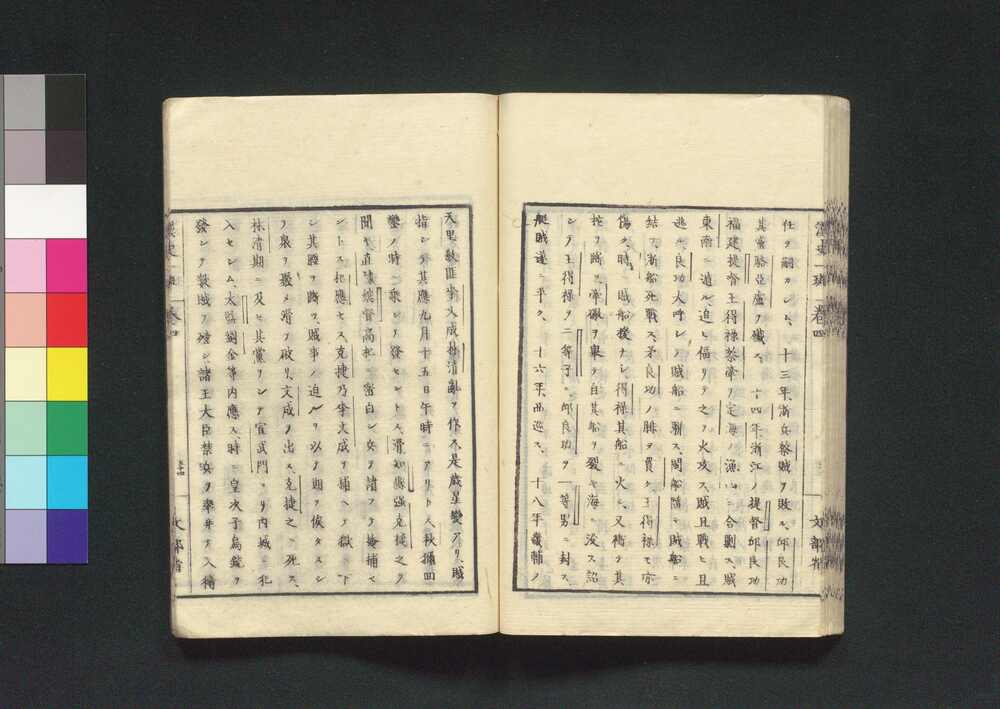 任ヲ嗣カシム、十三年、浙兵蔡賊ヲ敗ル、邱良功
其黨駱亞盧ヲ殲ス、十四年、浙江ノ提督邱良功
福建提督王得祿蔡牽ヲ定海ノ漁山ニ合剿ス、賊
東南ニ遁ル、追ヒ偪リテ之ヲ火攻ス、賊且戰ヒ且
逃ル、良功大呼シテ賊船ニ駢ス、閩船隨テ賊船ニ
結フ、浙船死戰ス、矛良功ノ腓ヲ貫ク、王得祿モ亦
傷ク、時ニ賊船援ナシ、得祿其船ニ火ス、又椗テ其
柁ヲ壞ル、牽礮ヲ擧テ自其船ヲ裂キ海ニ沒ス、詔
シテ王得祿ヲ二等子ニ邱良功ヲ一等男ニ封ス、
艇賊遂ニ平ク、十六年、西巡ス、十八年畿輔ノ
天理敎匪李文成林淸亂ヲ作ス、是歲星變アリ、賊
指シテ其應九月十五日午時ニアリトス、秋獮回
鑾ノ時ニ乘シテ發セントス、滑知縣强克捷之ヲ
聞キ、直隸總督高杞ニ密白シ兵ヲ請フテ掩捕セ
ントス、杞應セス、克捷乃李文成ヲ捕ヘテ獄ニ下
シ其脛ヲ斷ツ、賊事ノ迫ルヲ以テ期ヲ俟タスシ
テ衆ヲ聚メ滑ヲ破リ、文成ヲ出ス、克捷之ニ死ス、
林淸期ニ及ヒ其黨ヲシテ宣武門ヨリ內城ニ犯
入セシム、太監劉金等內應ス、時ニ皇次子烏鎗ヲ
發シテ數賊ヲ殪シ、諸王大臣禁兵ヲ率ヰテ入衛
卷四
文部省